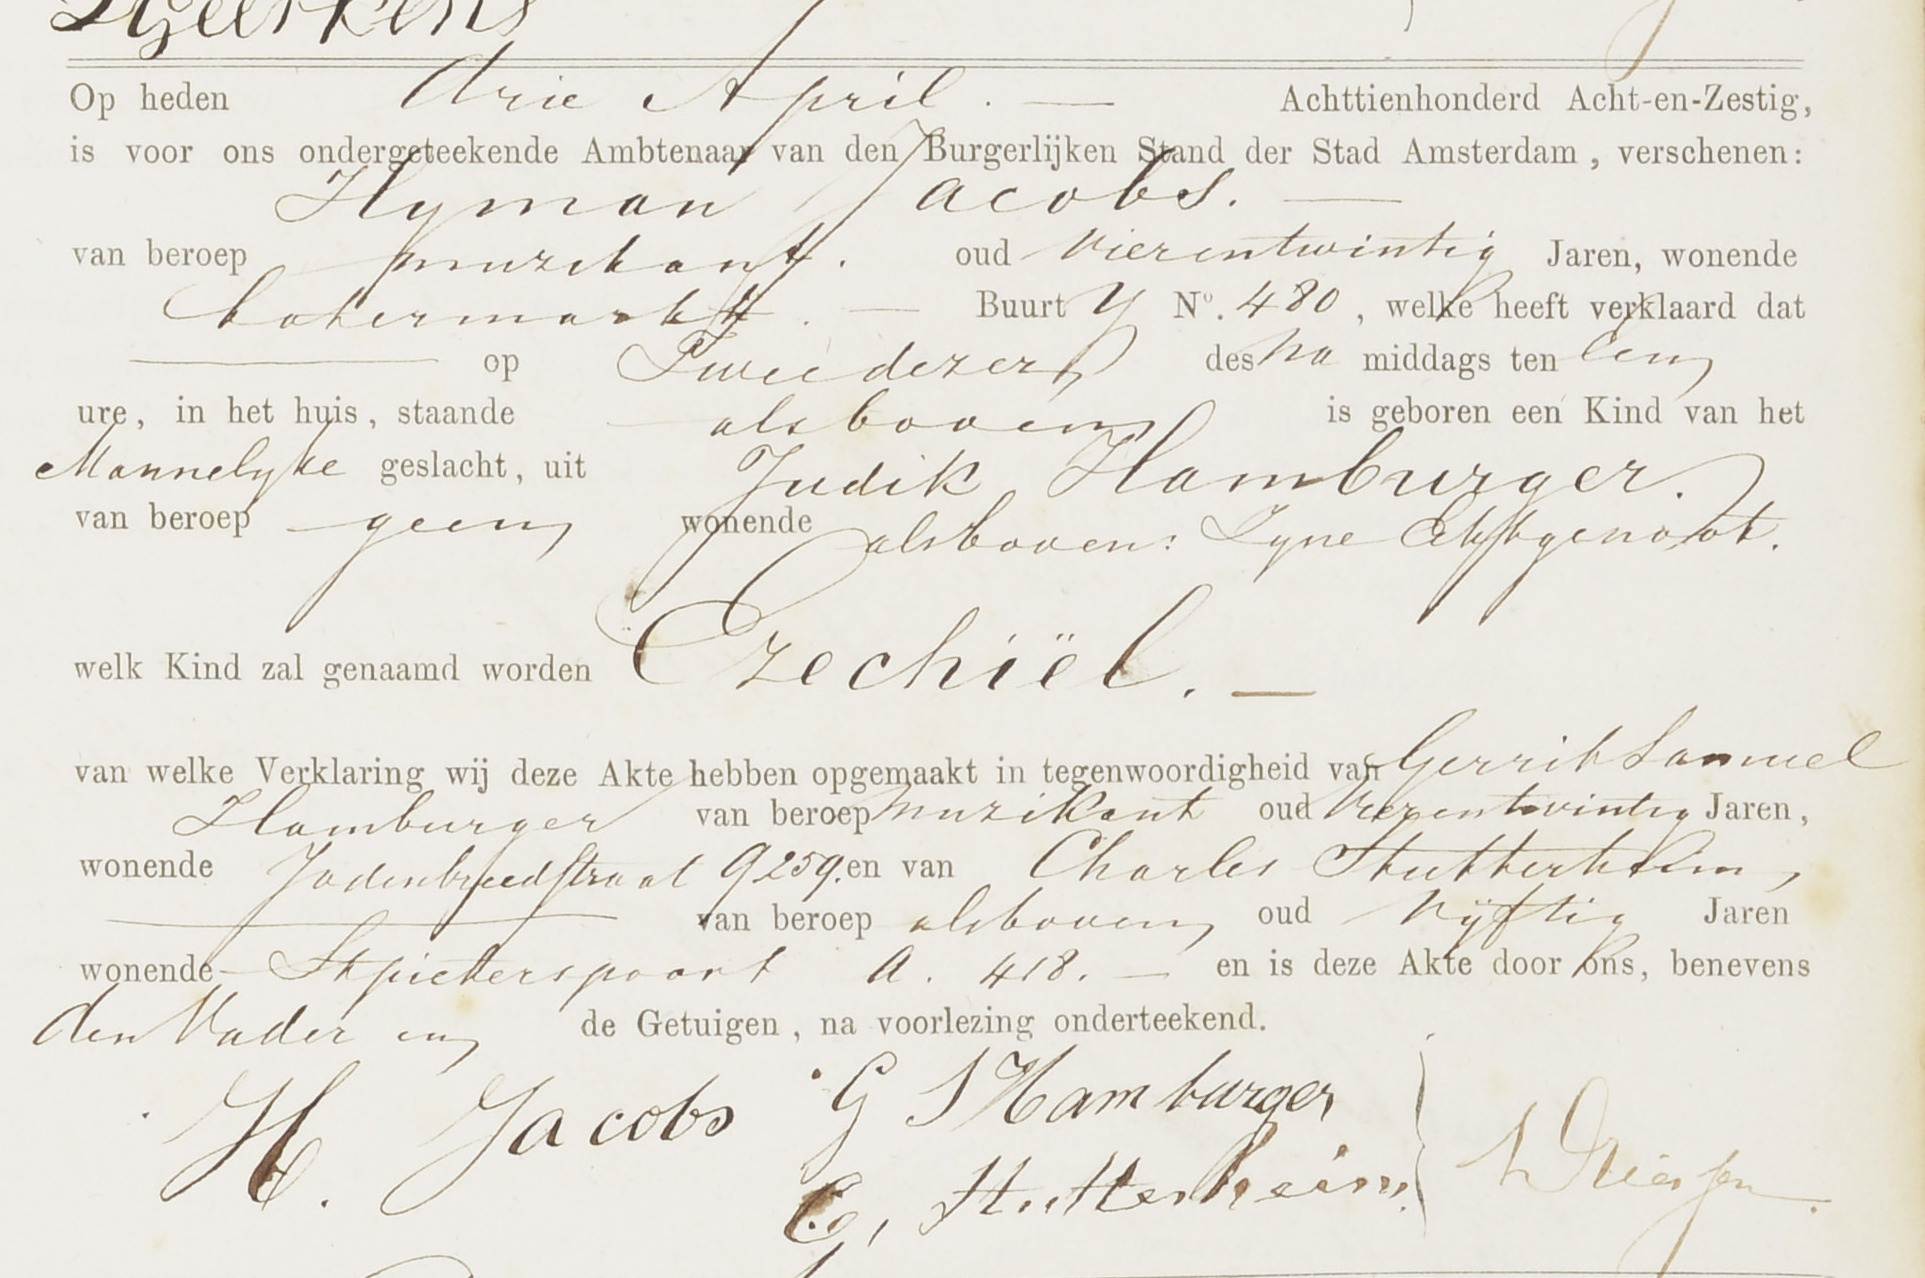 Op heden drie April. — Achttienhonderd Acht-en-Zestig,
is voor ons ondergeteekende Ambtenaar van den Burgerlijken Stand der Stad Amsterdam, verschenen:
Hyman Jacobs. —
van beroep muzikant. oud vierentwintig Jaren, wonende
botermarkt. — Buurt Y No. 480, welke heeft verklaard dat
— op Twee dezer des na middags ten een
ure, in het huis, staande alsboven is geboren een Kind van het
Mannelyke geslacht, uit Judik Hamburger.
van beroep geen wonende alsboven: Zyne Echtgenoot.
welk Kind zal genaamd worden Ezechiël. —
van welke Verklaring wij deze Akte hebben opgemaakt in tegenwoordigheid van Gerrit Samuel
Hamburger van beroep muzikant oud vierentwintig Jaren,
wonende Jodenbreedstraat Q 259. en van Charles Stutterheim,
— van beroep alsboven oud vyftig Jaren
wonende — St pieterspoort A. 418. — en is deze Akte door ons, benevens
den Vader en de Getuigen, na voorlezing onderteekend.
H. Jacobs G S Hamburger
C. Stutterheim.